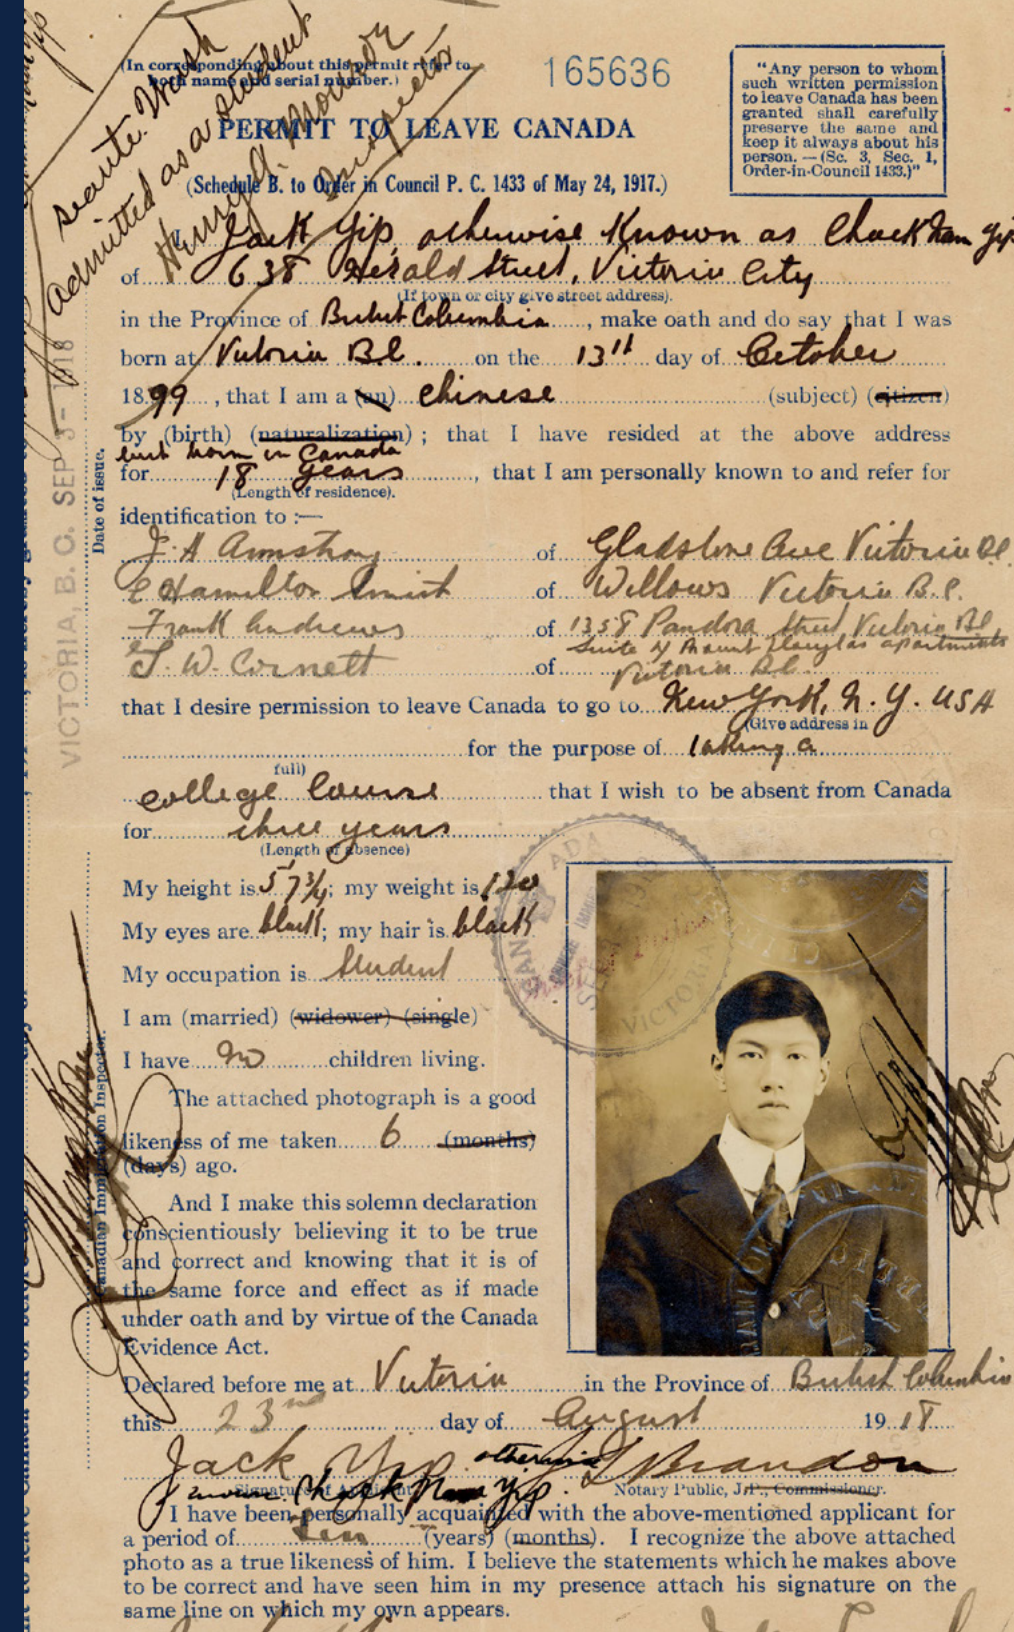 (In corresponding about this permit refer to
both name and serial number.)
165636
"Any person to whom
such written permission
to leave Canada has been
granted shall carefully
preserve the same and
keep it always about his
person. — (Sc. 3, Sec. 1,
Order-in-Council 1433.)"
Seattle. Wash
admitted as a student
Inspector
PERMIT TO LEAVE CANADA
(Schedule B. to Order in Council P. C. 1433 of May 24, 1917.)
I Jack Yip, otherwise Known as Chuck Nam Yip
of 638 Herald Street, Victoria City
(If town or city give street address).
in the Province of British Columbia, make oath and do say that I was
born at Victoria B.C. on the 13th day of October
1899, that I am a (an) Chinese (subject) (citizen)
by (birth) (naturalization); that I have resided at the above address
but born in Canada
for 18 years, that I am personally known to and refer for
(Length of residence).
identification to :—
J. H Armstrong of Gladstone Ave Victoria B.C.
E Hamilton Smith of Willows Victoria B.C.
Frank Andrews of 1358 Pandora Street Victoria BC
Suite 4 Mount Douglas apartments
T. W. Cornett of Victoria B.C.
that I desire permission to leave Canada to go to New York, N. Y. USA
(Give address in
for the purpose of taking a
full)
college Course that I wish to be absent from Canada
for three years
(Length of absence)
My height is 5' 7 3/4; my weight is 120
My eyes are black; my hair is black
My occupation is Student
I am (married) (widower) (single)
I have no children living.
The attached photograph is a good
likeness of me taken 6 (months)
(days) ago.
And I make this solemn declaration
conscientiously believing it to be true
and correct and knowing that it is of
the same force and effect as if made
under oath and by virtue of the Canada
Evidence Act.
Declared before me at Victoria in the Province of British Columbia
this 23rd day of August 1918
Jack Yip otherwise
known Chuck Nam Yip.
Brandon
Signature of Applicant
Notary Public, J.P., Commissioner.
I have been personally acquainted with the above-mentioned applicant for
a period of Ten (years) (months). I recognize the above attached
photo as a true likeness of him. I believe the statements which he makes above
to be correct and have seen him in my presence attach his signature on the
same line on which my own appears.
VICTORIA, B. C. SEP 3 - 1918
Date of issue.
Canadian Immigration Inspector.
VICTORIA